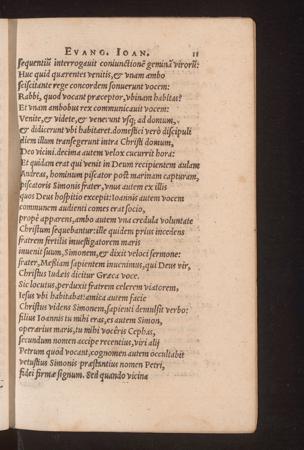 EVANG. IOAN. 18
sequentiũ interrogauit coniunctionẽ geminã virorũ:
Huc quid quærentes venitis, & vnam ambo
sciscitante rege concordem sonuerunt vocem:
Rabbi, quod vocant præceptor, vbinam habitas?
Et vnam ambobus rex communicauit vocem:
Venite, & videte, & vener: vnt vsq; ad domum,
& didicerunt vbi habitaret. domestici verò discipuli
diem illum transegerunt intra Christi domum,
Deo vicini. decima autem velox cucurrit hora:
Et quidam erat qui venit in Deum recipientem aulam
Andreas, hominum piscator post marinam capturam,
piscatoris Simonis frater, vnus autem ex illis
quos Deus hospitio excepit: Ioannis autem vocem
communem audienti comes erat socio,
propè apparens, ambo autem vna credula voluntate
Christum sequebantur: ille quidem prius incedens
fratrem fertilis inuestigatorem maris
inuenit suum, Simonem, & dixit veloci sermone:
frater, Messiam sapientem inuenimus, qui Deus vir,
Christus Iudaïs dicitur Græca voce.
Sic locutus, perduxit fratrem celerem viatorem,
Iesus vbi habitabat: amica autem facie
Christus videns Simonem, sapienti demulsit verbo:
filius Ioannis tu mihi eras, es autem Simon,
operarius maris, tu mihi vocêris Cephas,
secundum nomen accipe recentius, viri alij
Petrum quod vocant, cognomen autem occultabit
vetustius Simonis præstantius nomen Petri,
fidei firmæ signum. Sed quando vicina